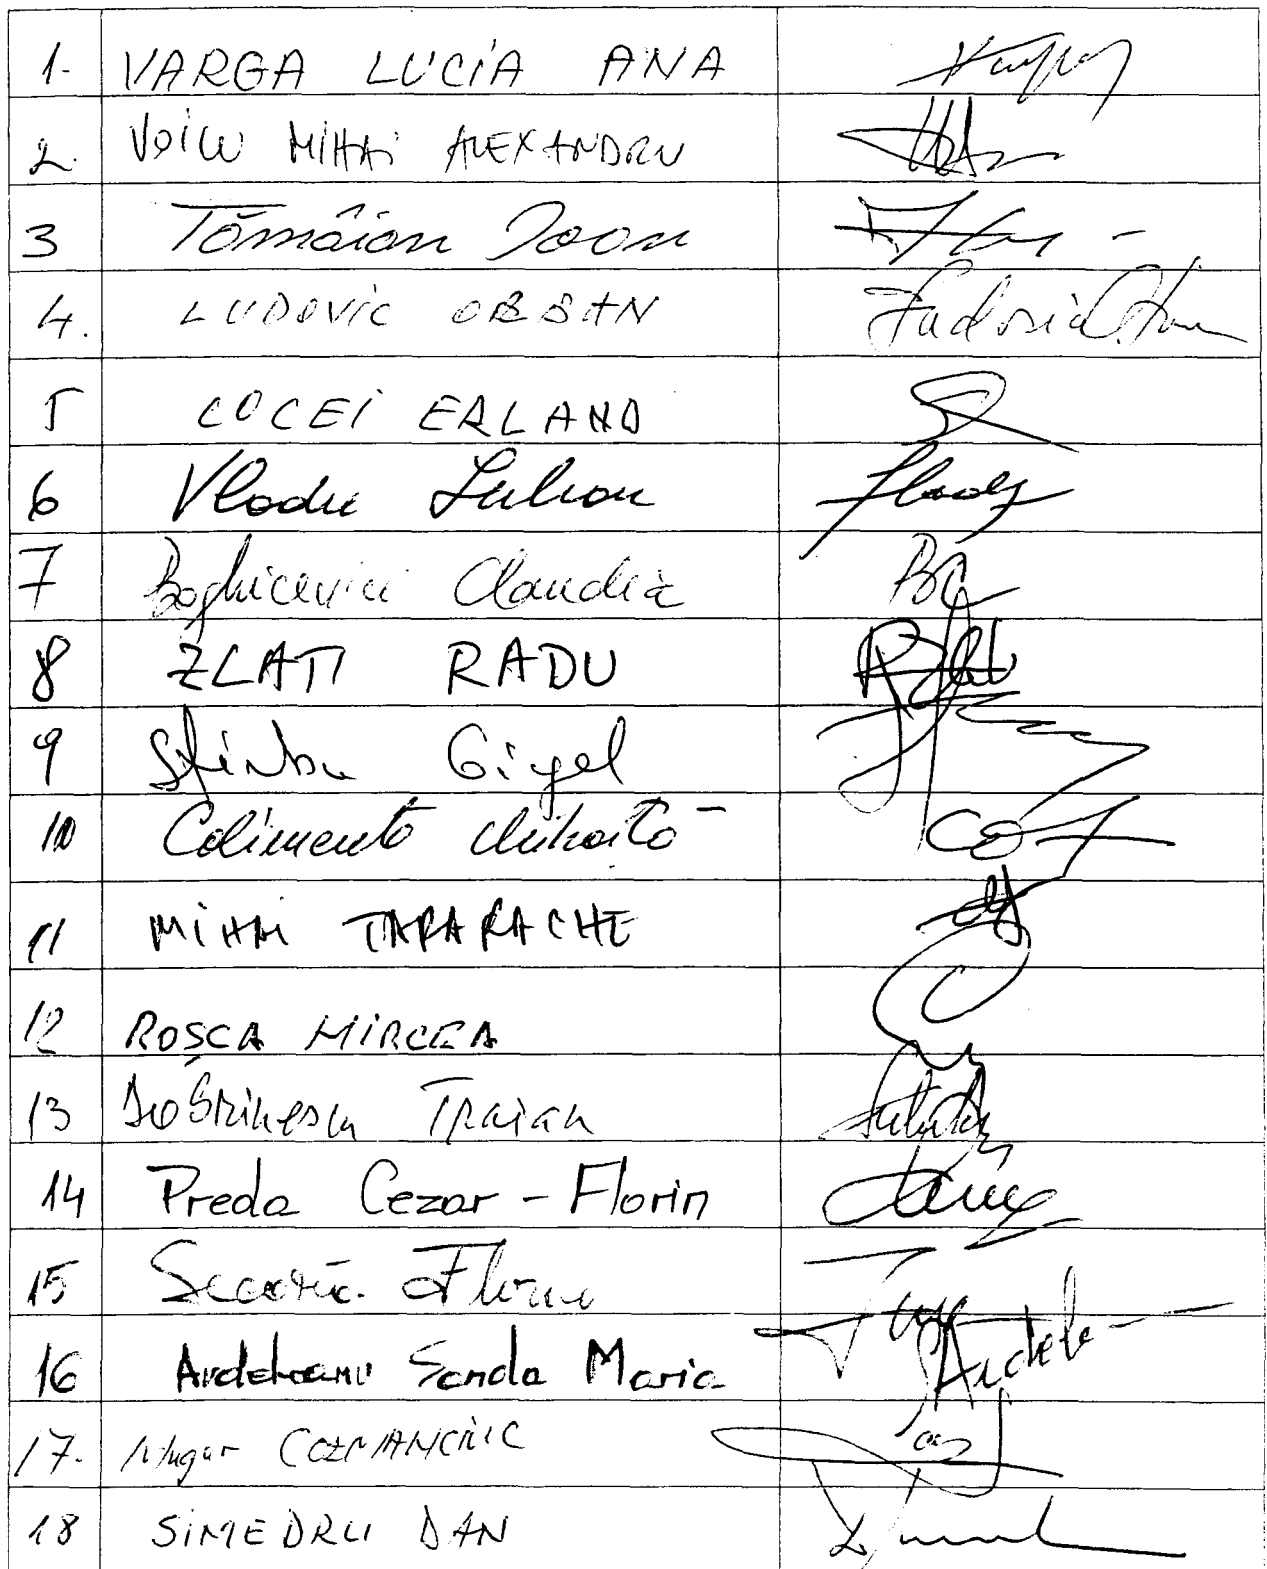 1. VARGA LUCIA ANA
2. VOICU MIHAI ALEXANDRU
3 Tămâian Ioan
4. LUDOVIC ORBAN
5 COCEI ERLAND
6 Vladu Iulian
7 Boghicevici Claudia
8 ZLATI RADU
9 Știrbu Gigel
10 Calimente Mihăiță
11 MIHAI TARARACHE
12 ROȘCA MIRCEA
13 Dobrinescu Traian
14 Preda Cezar-Florin
15 Secară Florin
16 Ardeleanu Sanda Maria
17. Mugur COZMANCIUC
18 SIMEDRU DAN